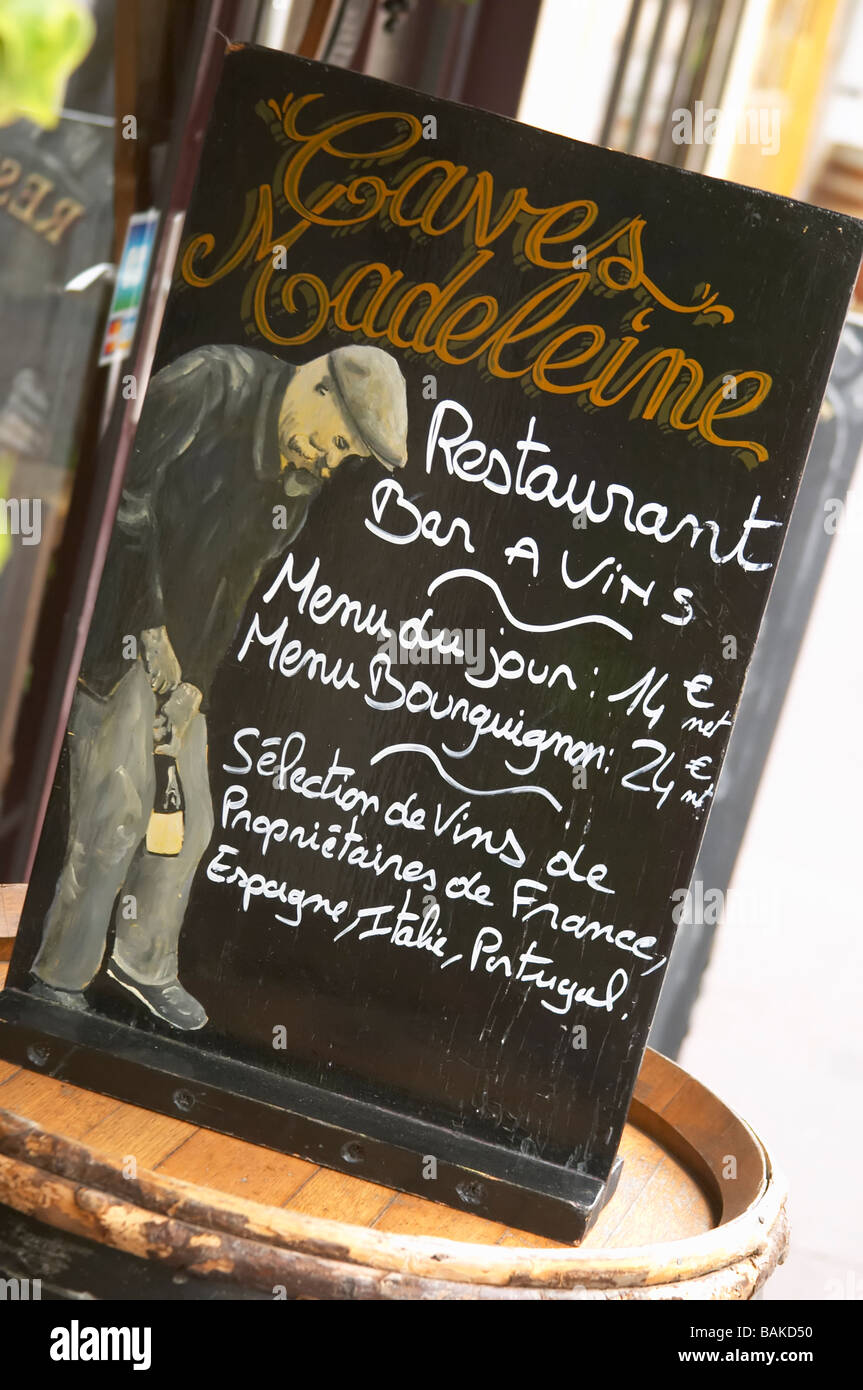 Caves
Madeleine
Restaurant
Bar A Vins
Menu du jour : 14 € net
Menu Bourguignon : 24 € net
Sélection de Vins de
Propriétaires de France,
Espagne, Italie, Portugal.
RES
alamy
Image ID: BAKD50
www.alamy.com